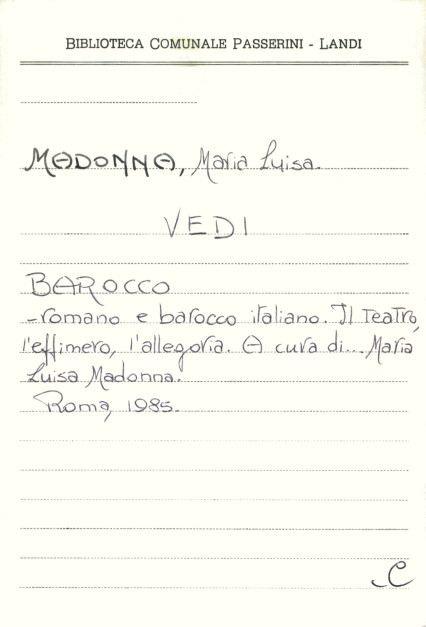 BIBLIOTECA COMUNALE PASSERINI - LANDI
MADONNA, Maria Luisa.
VEDI
BAROCCO
-romano e barocco italiano. Il Teatro,
l'effimero, l'allegoria. A cura di... Maria
Luisa Madonna.
Roma, 1985.
C